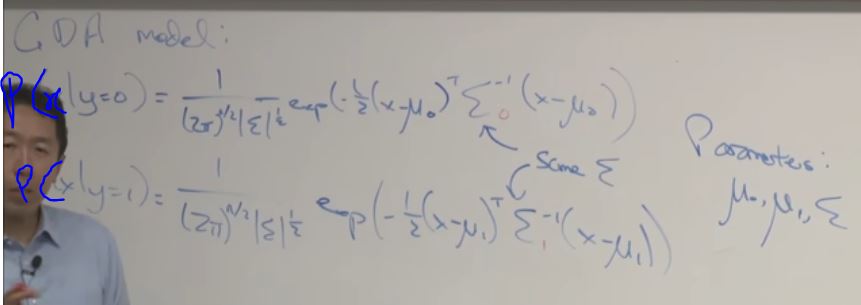 GDA model:
P(x|y=0) = 1/((2π)^{n/2}|Σ|^{1/2}) exp(-1/2(x-μ₀)^T Σ₀^{-1} (x-μ₀))
Same Σ
P(x|y=1) = 1/((2π)^{n/2}|Σ|^{1/2}) exp(-1/2(x-μ₁)^T Σ₁^{-1} (x-μ₁))
Parameters:
μ₀, μ₁, Σ